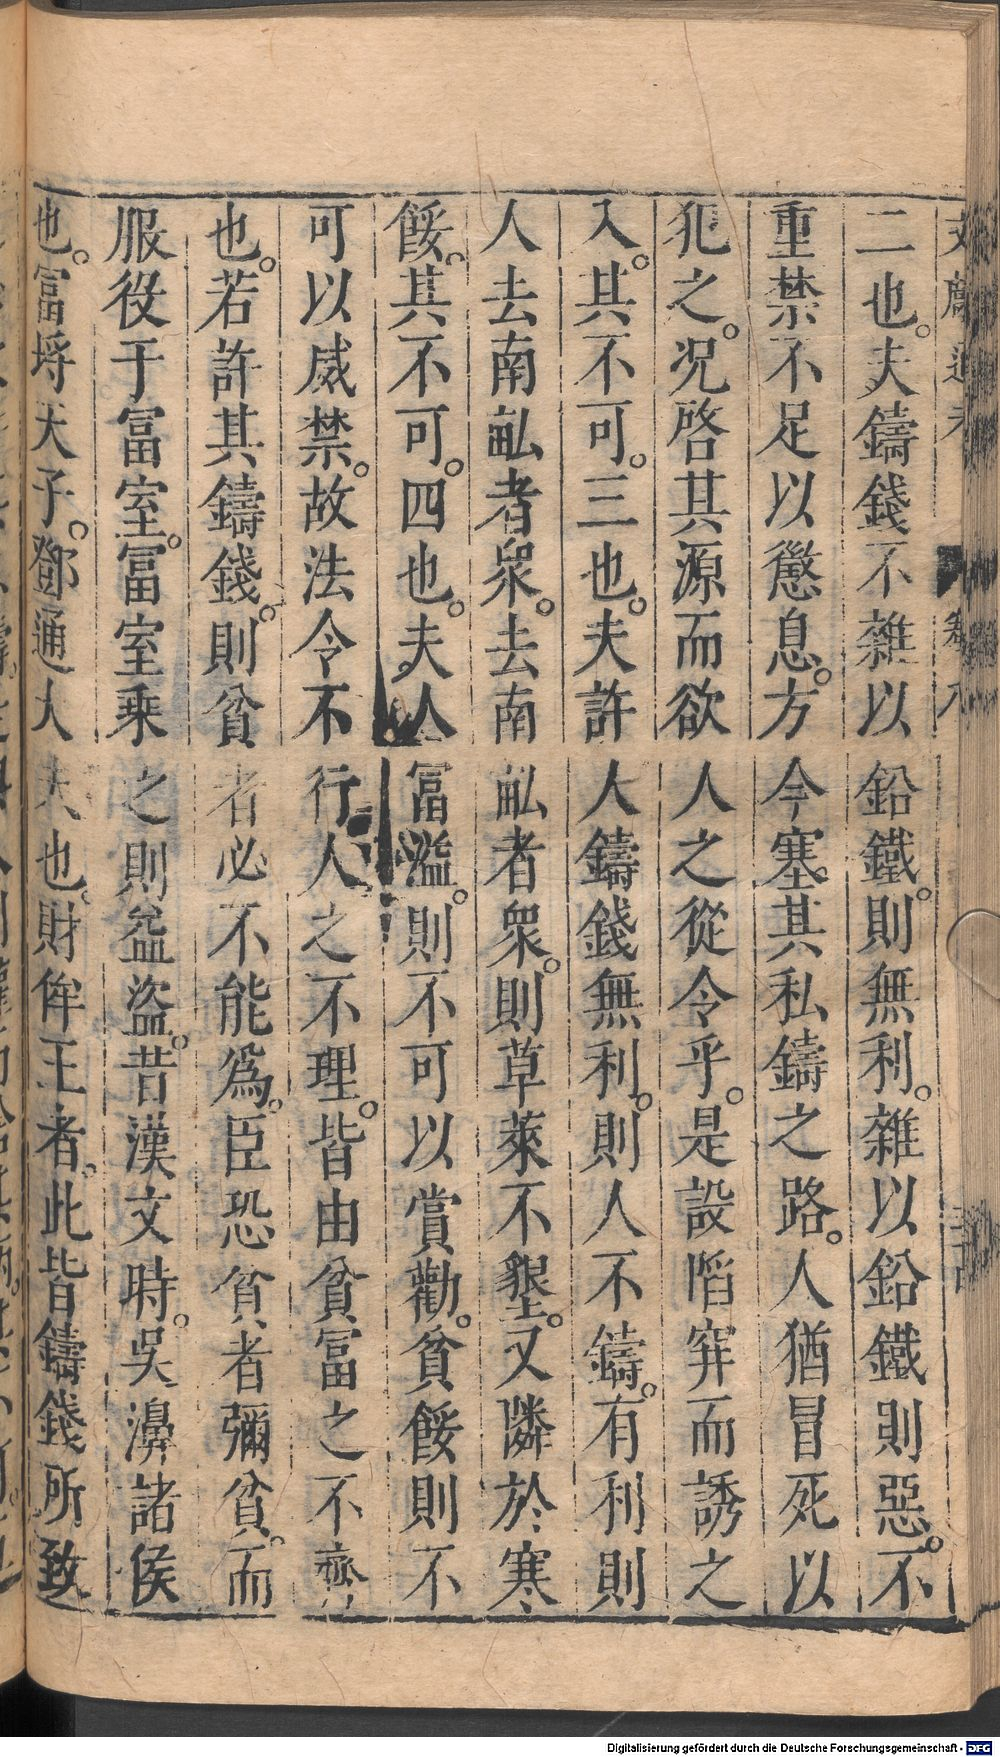 二也。夫鑄錢不雜以鉛鐵。則無利。雜以鉛鐵則惡。不
重禁不足以懲息。方今塞其私鑄之路。人猶冒死以
犯之。况啓其源而欲人之從令乎。是設陷穽而誘之
入。其不可。三也。夫許人鑄錢無利。則人不鑄。有利則
人去南畝者衆。去南畝者衆。則草萊不墾。又隣於寒
餒。其不可。四也。夫人富溢。則不可以賞勸。貧餒則不
可以威禁。故法令不行。人之不理。皆由貧富之不齊
也。若許其鑄錢。則貧者必不能爲。臣恐貧者彌貧。而
服役于富室。富室乘之則益盗。昔漢文時。吳濞諸侯
也。富埒天子。鄧通大夫也。財侔王者。此皆鑄錢所致
Digitalisierung gefördert durch die Deutsche Forschungsgemeinschaft - DFG